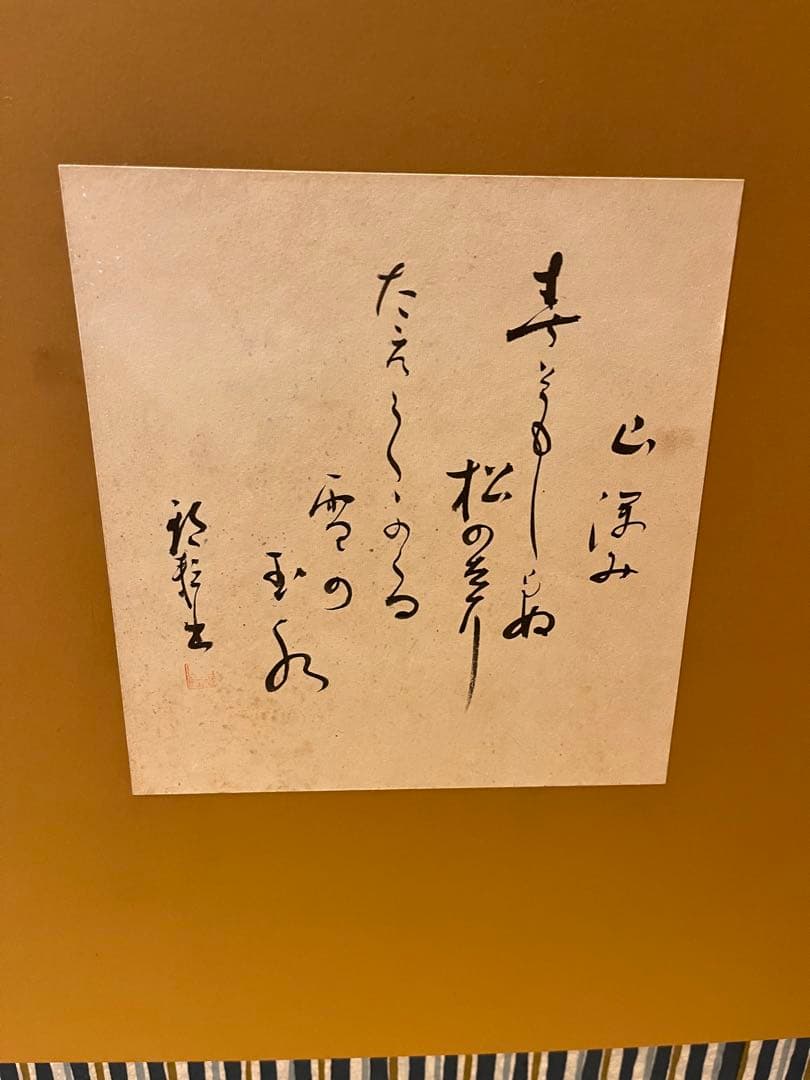 山深み
春ともしらぬ
松のとに
たえ〲かゝる
雪の
玉水